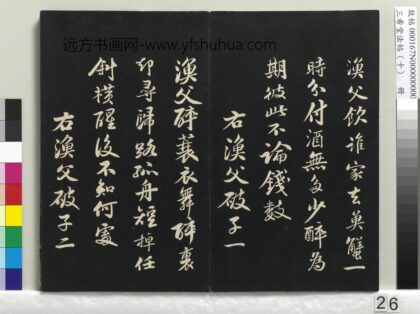 远方书画网-www.yfshuhua.com
漁父飲誰家去魚蟹一
時分付酒無多少醉為
期彼此不論錢數
右漁父破子一
漁父醉蓑衣舞醉裏
却尋歸路孤舟短棹任
斜橫醒後不知何處
右漁父破子二
故帖 000167N000000000
三希堂法帖（十） 冊
26